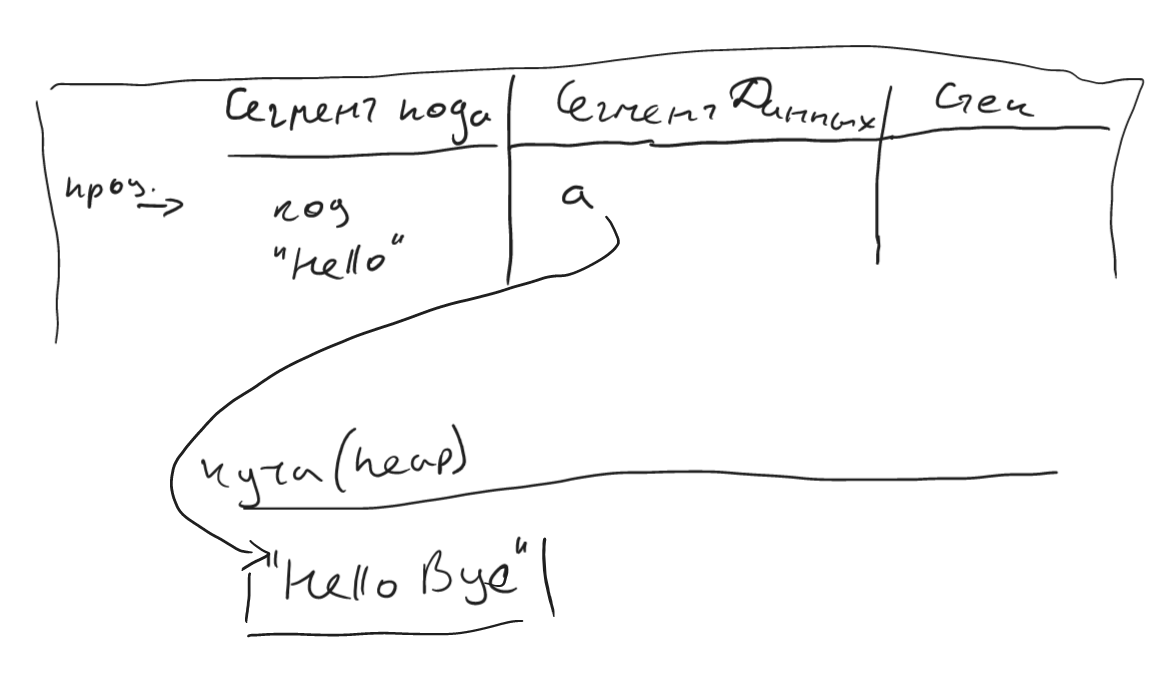 Сегмент кода Сегмент Данных Стек
проц. код а
"Hello"
куча (heap)
"Hello Bye"